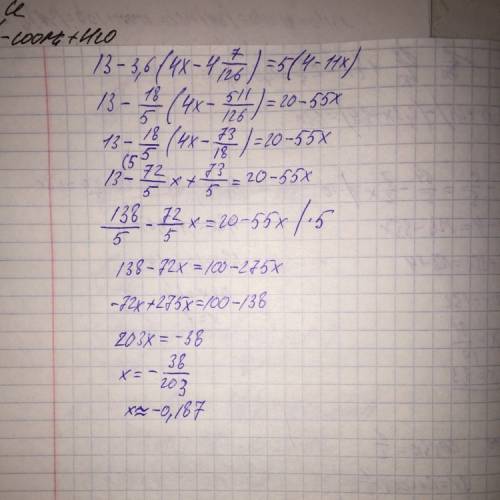 -COOH₂ + H₂O
13 - 3,6 (4x - 4 7/126) = 5(4 - 11x)
13 - 18/5 (4x - 511/126) = 20 - 55x
13 - 18/5 (4x - 73/18) = 20 - 55x
(5
13 - 72/5 x + 73/5 = 20 - 55x
138/5 - 72/5 x = 20 - 55x /·5
138 - 72x = 100 - 275x
-72x + 275x = 100 - 138
203x = -38
x = - 38/203
x ≈ -0,187